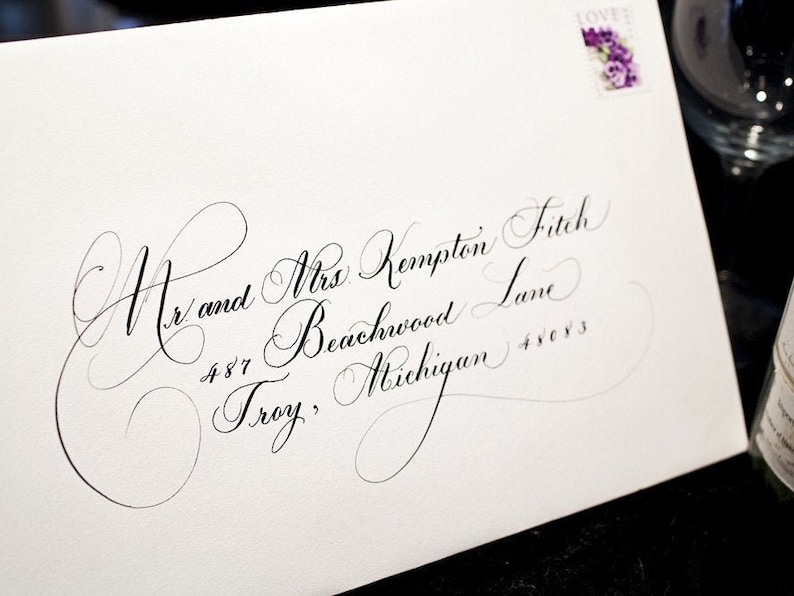 LOVE
Mr. and Mrs. Kempton Fitch
487 Beachwood Lane
Troy, Michigan 48083